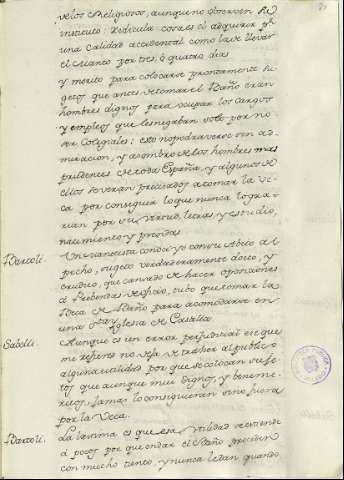 de los Religiosos, aunque no observen su
instituto: Ridicula cosa es el adquirir pr
una calidad accidental como la de llevar
el Manto por tres, ó quatro dias
y merito para colocarse prontamente su
getos que antes de tomar el Baño eran
hombres dignos para ocupar los cargos
y empleos que les negaban solo por no
ser Colegiales: esto no podrá verse sin ad
miracion, y asombro de los hombres mas
prudentes de toda España, y algunos de
ellos se verán precisados a tomar la Ve
ca por conseguir lo que nunca logra
rian por su virtud, letras y estudio,
nacimiento y prendas
Bartoli. Un Manteista conocí yo con su Abito al
pecho, sugeto verdaderamente docto, y
erudito, que cansado de hacer oposiciones
á Prebendas de oficio, tubo que tomar la
Beca de Baño para acomodarse en
una Sta Iglesia de Castilla.
Sabelli. Aunque es un error perjudicial ese que
me refieres no deja de traher al publico
alguna utilidad por que se colocan suge
tos que aunque muy dignos, y beneme
ritos, jamas lo consiguieran sino fuera
por la Veca.
Bartoli. La lastima es que esa utilidad se extiende
á pocos por que en dar el Baño proceden
con mucho tiento, y nunca le dan quando